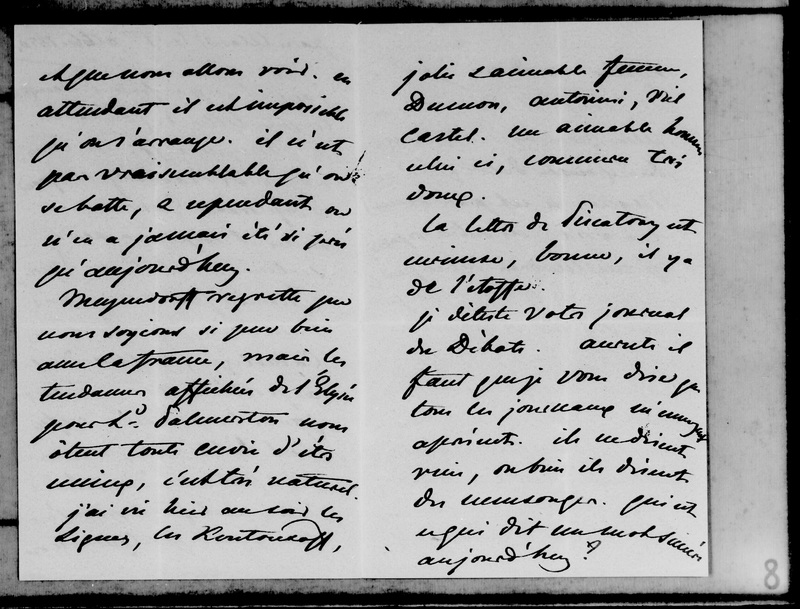 et que nous allons voir. en
attendant il est impossible
qu'on s'arrange. il n'est
pas vraisemblable qu'on
se batte, & cependant on
n'en a jamais été si près
qu'aujourd'huy.
Meyendorff regrette que
nous soyions si peu bien
avec la france, mais les
tendances affichées de l'Elysée
pour Ld. Palmerston nous
ôtent toute envie d'être
mieux, c'est très naturel.
j'ai vu hier au soir les
Ligner, les Koutousoff,
jolie & aimable femme,
Dumon, antonini, Viel
Castel. un aimable homme
celui ci, comme
doux.
la lettre de Piscatory est
curieuse, bonne, il y a
de l'étoffe.
je déteste votre journal
des Débats. ensuite il
faut que je vous dise que
tous les journaux m'ennuyent
à présent. ils ne disent
rien, ou bien ils disent
des mensonges. qui est
ce qui dit un mot sincère
aujourd'huy ?
8